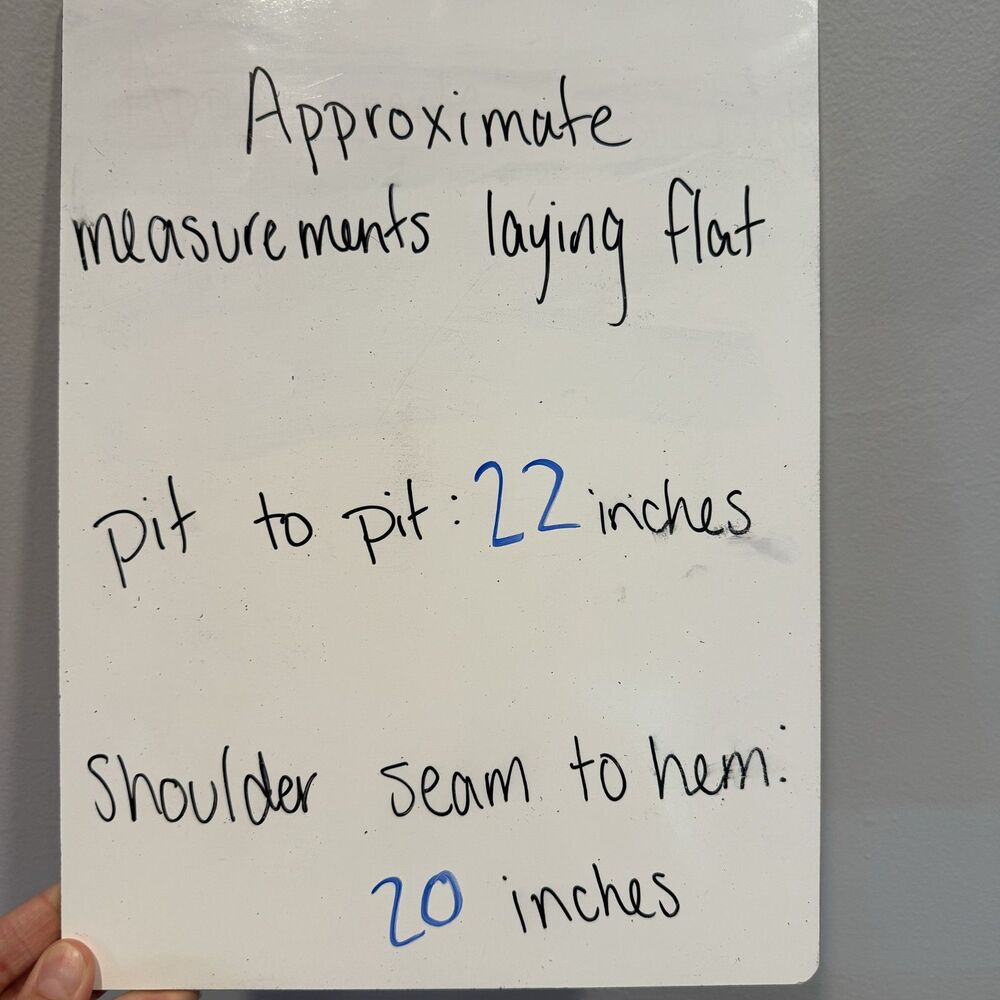 Approximate
measurements laying flat
pit to pit: 22 inches
Shoulder seam to hem:
20 inches